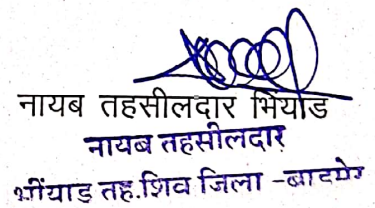 नायब तहसीलदार भियाड
नायब तहसीलदार
भींयाड़ तह.शिव जिला -बाडमेर